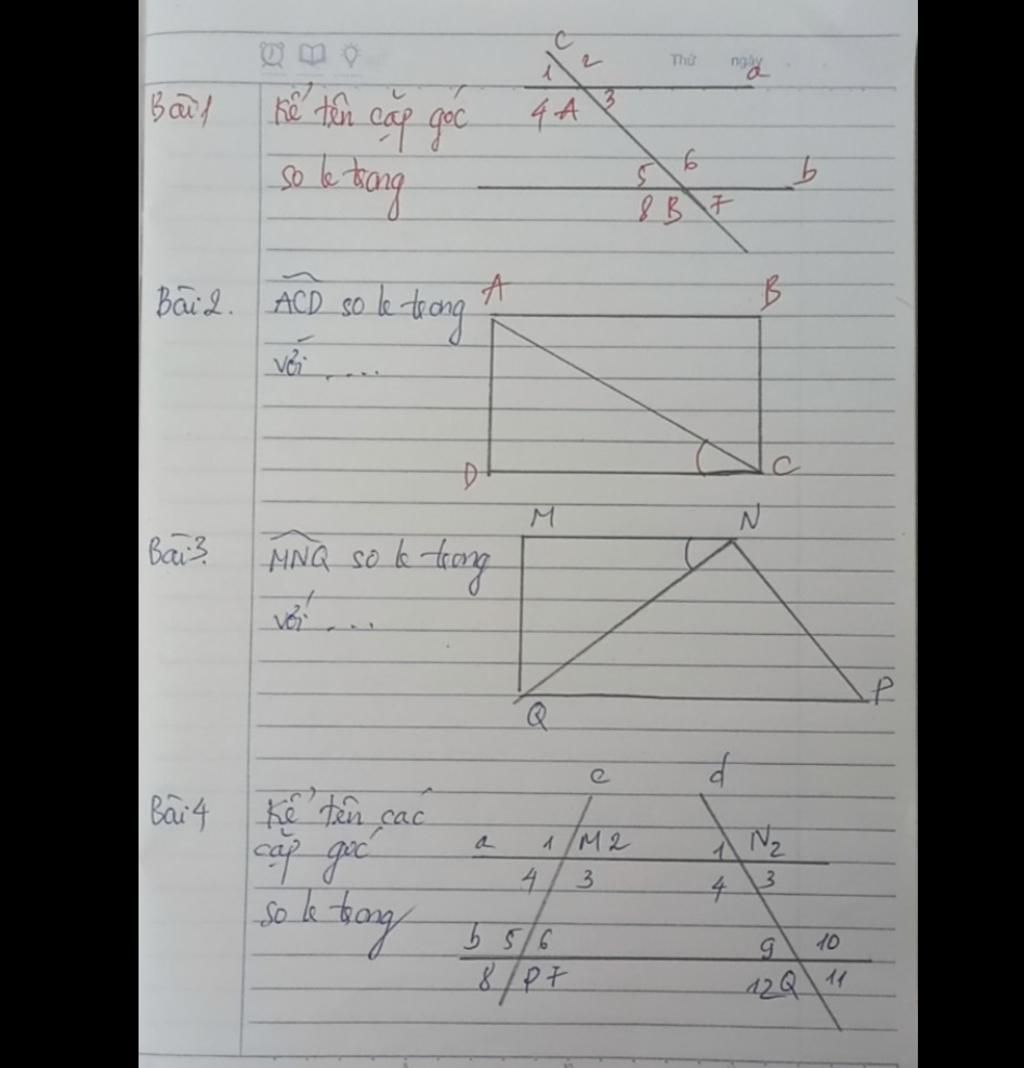 Thứ ngày
c
1 2 a
Bài 1 Kể tên cặp góc 4 A 3
so le trong 5 6 b
8 B 7
Bài 2. ACD so le trong A B
với ....
D C
M N
Bài 3. MNQ so le trong
với ....
Q P
c d
Bài 4 Kể tên các
cặp góc a 1 M 2 1 N 2
4 3 4 3
so le trong
b 5 6 9 10
8 P 7 12 Q 11